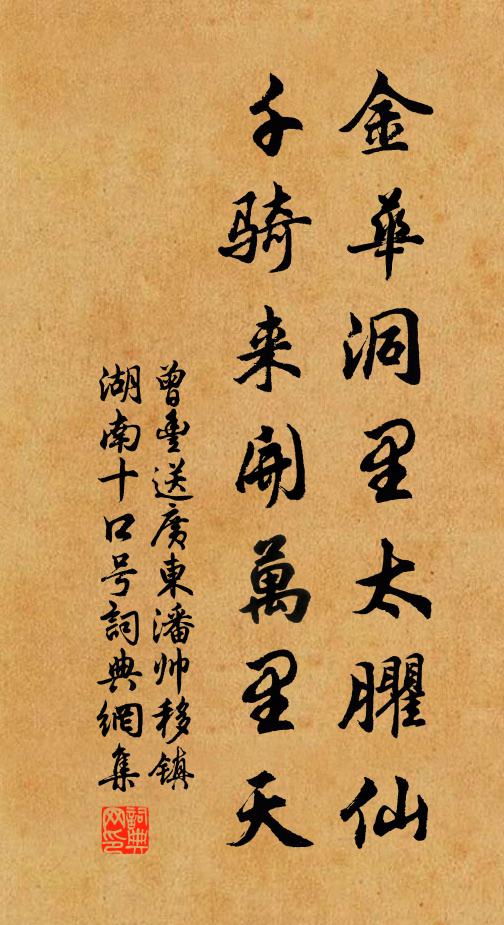 金華洞里太臞仙
千骑来開萬里天
曾豐送廣東潘帅移鎮
湖南十口号詞典網集
詞典网印